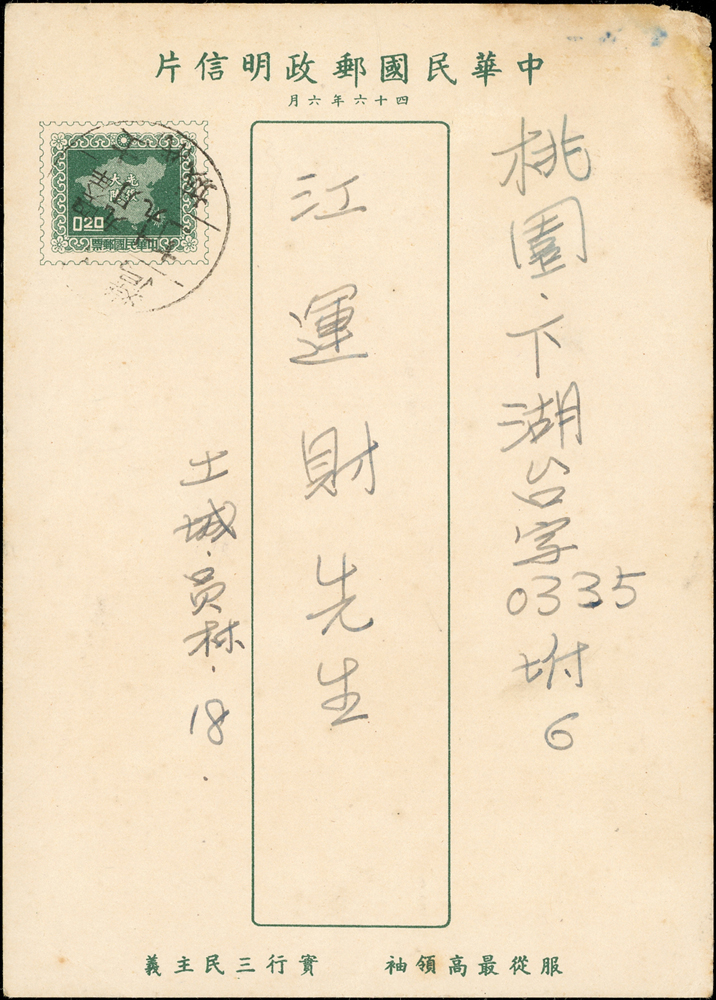 中華民國郵政明信片
四十六年六月
桃園．下湖台字0335附6
江運財先生
土城．員林．18．
0.20
中華民國郵票
服從最高領袖
實行三民主義